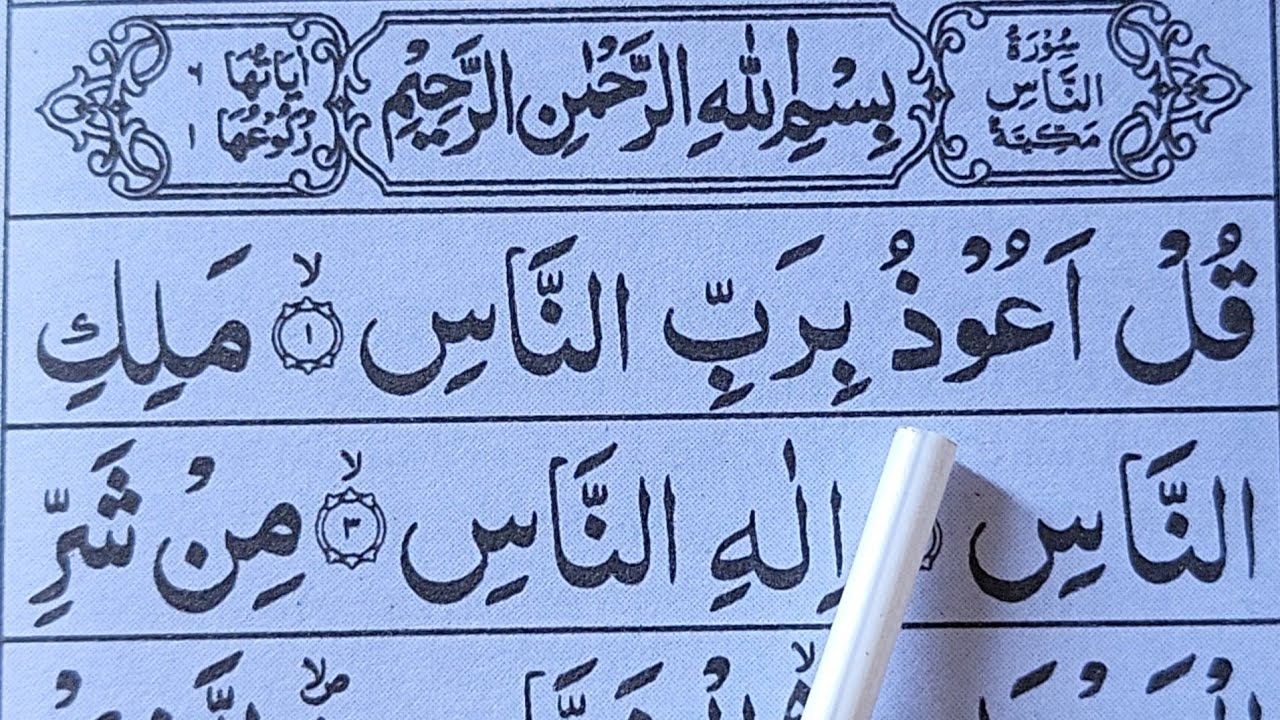 سُوۡرَةُ النَّاسِ مَكِّيَّةٌ
بِسۡمِ اللّٰهِ الرَّحۡمٰنِ الرَّحِيۡمِ
اٰيَاتُهَا ٦ رُكُوۡعُهَا ١
قُلۡ اَعُوۡذُ بِرَبِّ النَّاسِ ۙ‏﴿۱﴾ مَلِكِ
النَّاسِ اِلٰهِ النَّاسِ ۙ‏﴿۳﴾ مِنۡ شَرِّ